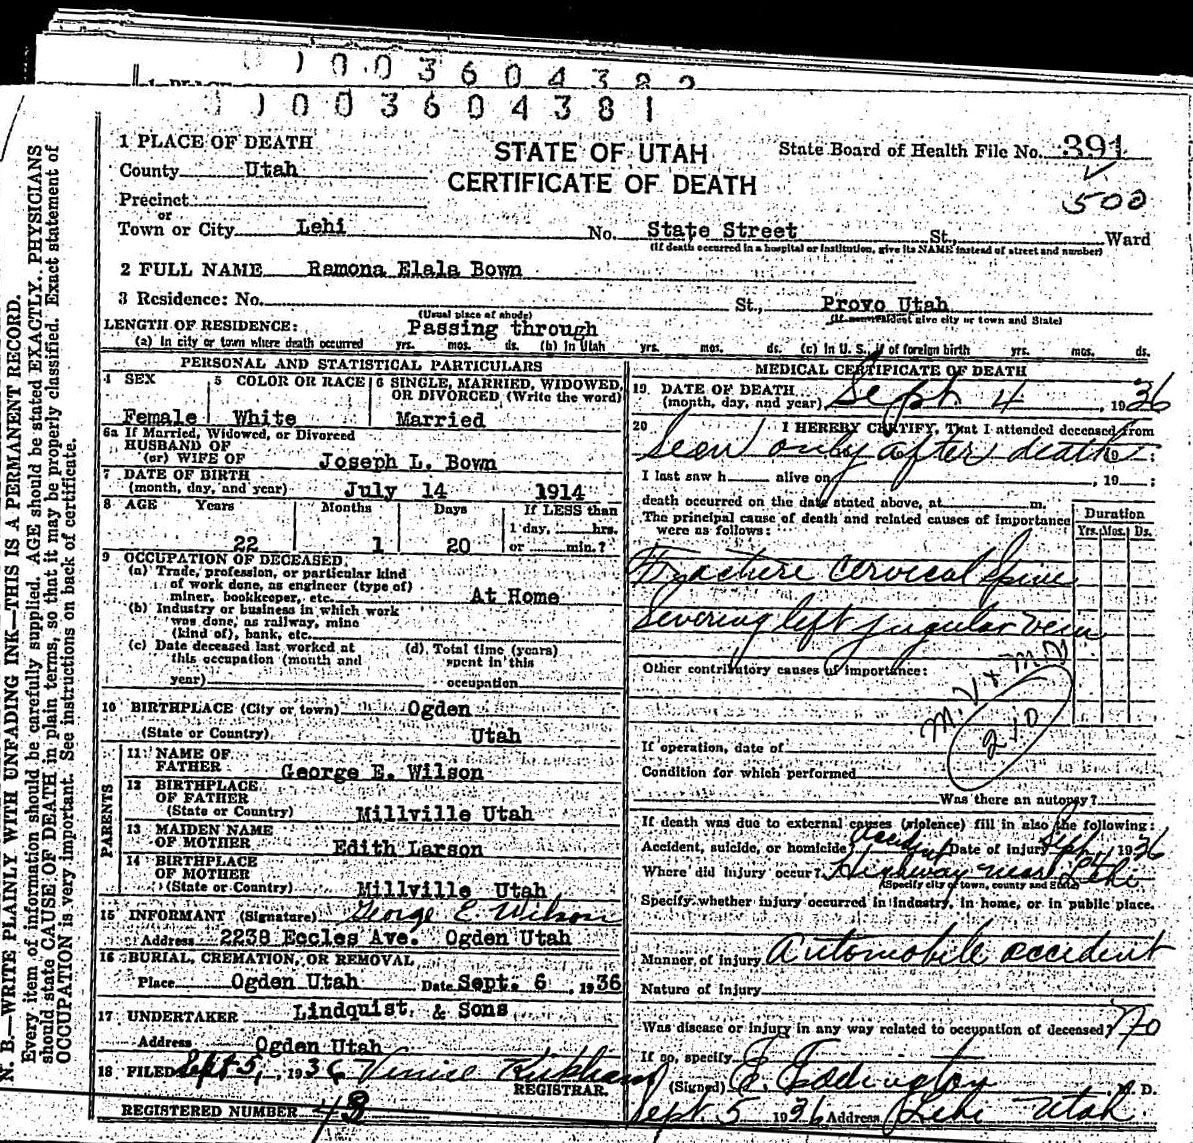 0 0 0 3 6 0 4 3 8 2
0 0 0 3 6 0 4 3 8 1
N. B.—WRITE PLAINLY WITH UNFADING INK—THIS IS A PERMANENT RECORD.
Every item of information should be carefully supplied. AGE should be stated EXACTLY. PHYSICIANS
should state CAUSE OF DEATH in plain terms, so that it may be properly classified. Exact statement of
OCCUPATION is very important. See instructions on back of certificate.
STATE OF UTAH
CERTIFICATE OF DEATH
State Board of Health File No. 391
500
1 PLACE OF DEATH
County Utah
Precinct
or
Town or City Lehi No. State Street St., Ward
(If death occurred in a hospital or institution, give its NAME instead of street and number)
2 FULL NAME Ramona Elala Bown
3 Residence: No. St., Provo Utah
(Usual place of abode) (If nonresident give city or town and State)
LENGTH OF RESIDENCE: Passing through
(a) In city or town where death occurred yrs. mos. ds. (b) In Utah yrs. mos. ds. (c) In U. S., if of foreign birth yrs. mos. ds.
PERSONAL AND STATISTICAL PARTICULARS
4 SEX
Female
5 COLOR OR RACE
White
6 SINGLE, MARRIED, WIDOWED,
OR DIVORCED (Write the word)
Married
6a If Married, Widowed, or Divorced
HUSBAND OF
(or) WIFE OF Joseph L. Bown
7 DATE OF BIRTH
(month, day, and year) July 14 1914
8 AGE Years Months Days If LESS than
1 day, hrs.
22 1 20 or min.?
9 OCCUPATION OF DECEASED
(a) Trade, profession, or particular kind
of work done, as engineer (type of)
miner, bookkeeper, etc. At Home
(b) Industry or business in which work
was done, as railway, mine
(kind of), bank, etc.
(c) Date deceased last worked at
this occupation (month and
year)
(d) Total time (years)
spent in this
occupation
10 BIRTHPLACE (City or town) Ogden
(State or Country) Utah
PARENTS
11 NAME OF
FATHER George E. Wilson
12 BIRTHPLACE
OF FATHER
(State or Country) Millville Utah
13 MAIDEN NAME
OF MOTHER Edith Larson
14 BIRTHPLACE
OF MOTHER
(State or Country) Millville Utah
15 INFORMANT (Signature) George E Wilson
Address 2238 Eccles Ave. Ogden Utah
16 BURIAL, CREMATION, OR REMOVAL
Place Ogden Utah Date Sept. 6, 1936
17 UNDERTAKER Lindquist, & Sons
Address Ogden Utah
18 FILED Sept 5, 1936 Venice Kirkham
REGISTRAR.
REGISTERED NUMBER 43
MEDICAL CERTIFICATE OF DEATH
19 DATE OF DEATH
(month, day, and year) Sept. 4, 1936
20 I HEREBY CERTIFY, That I attended deceased from
Seen only after death 19 ;
I last saw h alive on , 19 ;
death occurred on the date stated above, at m.
The principal cause of death and related causes of importance
were as follows:
Duration
Yrs. Mos. Ds.
Fracture cervical Spine
Severing left jugular vein
Other contributory causes of importance:
210
If operation, date of
Condition for which performed
Was there an autopsy?
If death was due to external causes (violence) fill in also the following:
Accident, suicide, or homicide accident Date of injury Sept 4, 1936
Where did injury occur? Highway near Lehi
(Specify city or town, county and State)
Specify whether injury occurred in industry, in home, or in public place.
Manner of injury Automobile accident
Nature of injury
Was disease or injury in any way related to occupation of deceased? No
If so, specify
(Signed) Eddington M. D.
Sept 5 1936 Address Lehi Utah